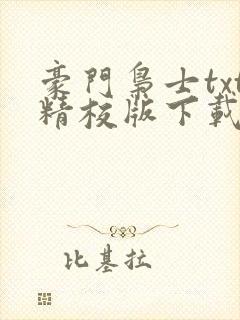 豪門梟士txt
精校版下載
比基拉